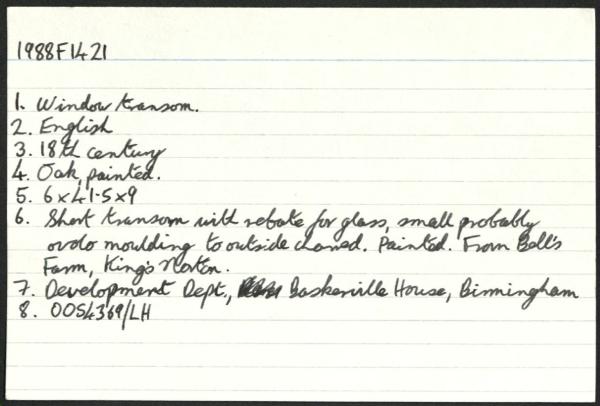 1988F1421
1. Window transom.
2. English
3. 18th century
4. Oak, painted.
5. 6x41.5x9
6. Short transom with rebate for glass, small probably
ovolo moulding to outside chamfed. Painted. From Bell's
Farm, King's Norton.
7. Development Dept., Baskerville House, Birmingham
8. 0054369/LH